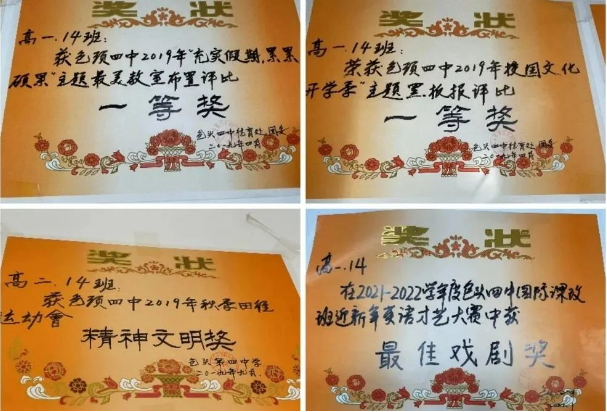 奖状
高一.14班：
获包头四中2019年"充实假期,累累
硕果"主题最美教室布置评比
一等奖
二〇一九年四月
奖状
高一.14班：
荣获包头四中2019年校园文化
开学季"主题黑板报评比
一等奖
二〇一九年四月
奖状
高二.14班：
获包头四中2019年秋季田径
运动會
精神文明奖
包头第四中学
二〇一九年九月
奖状
高一.14
在2021-2022学年度包头四中国际课改
班迎新年英语才艺大赛中获
最佳戏剧奖